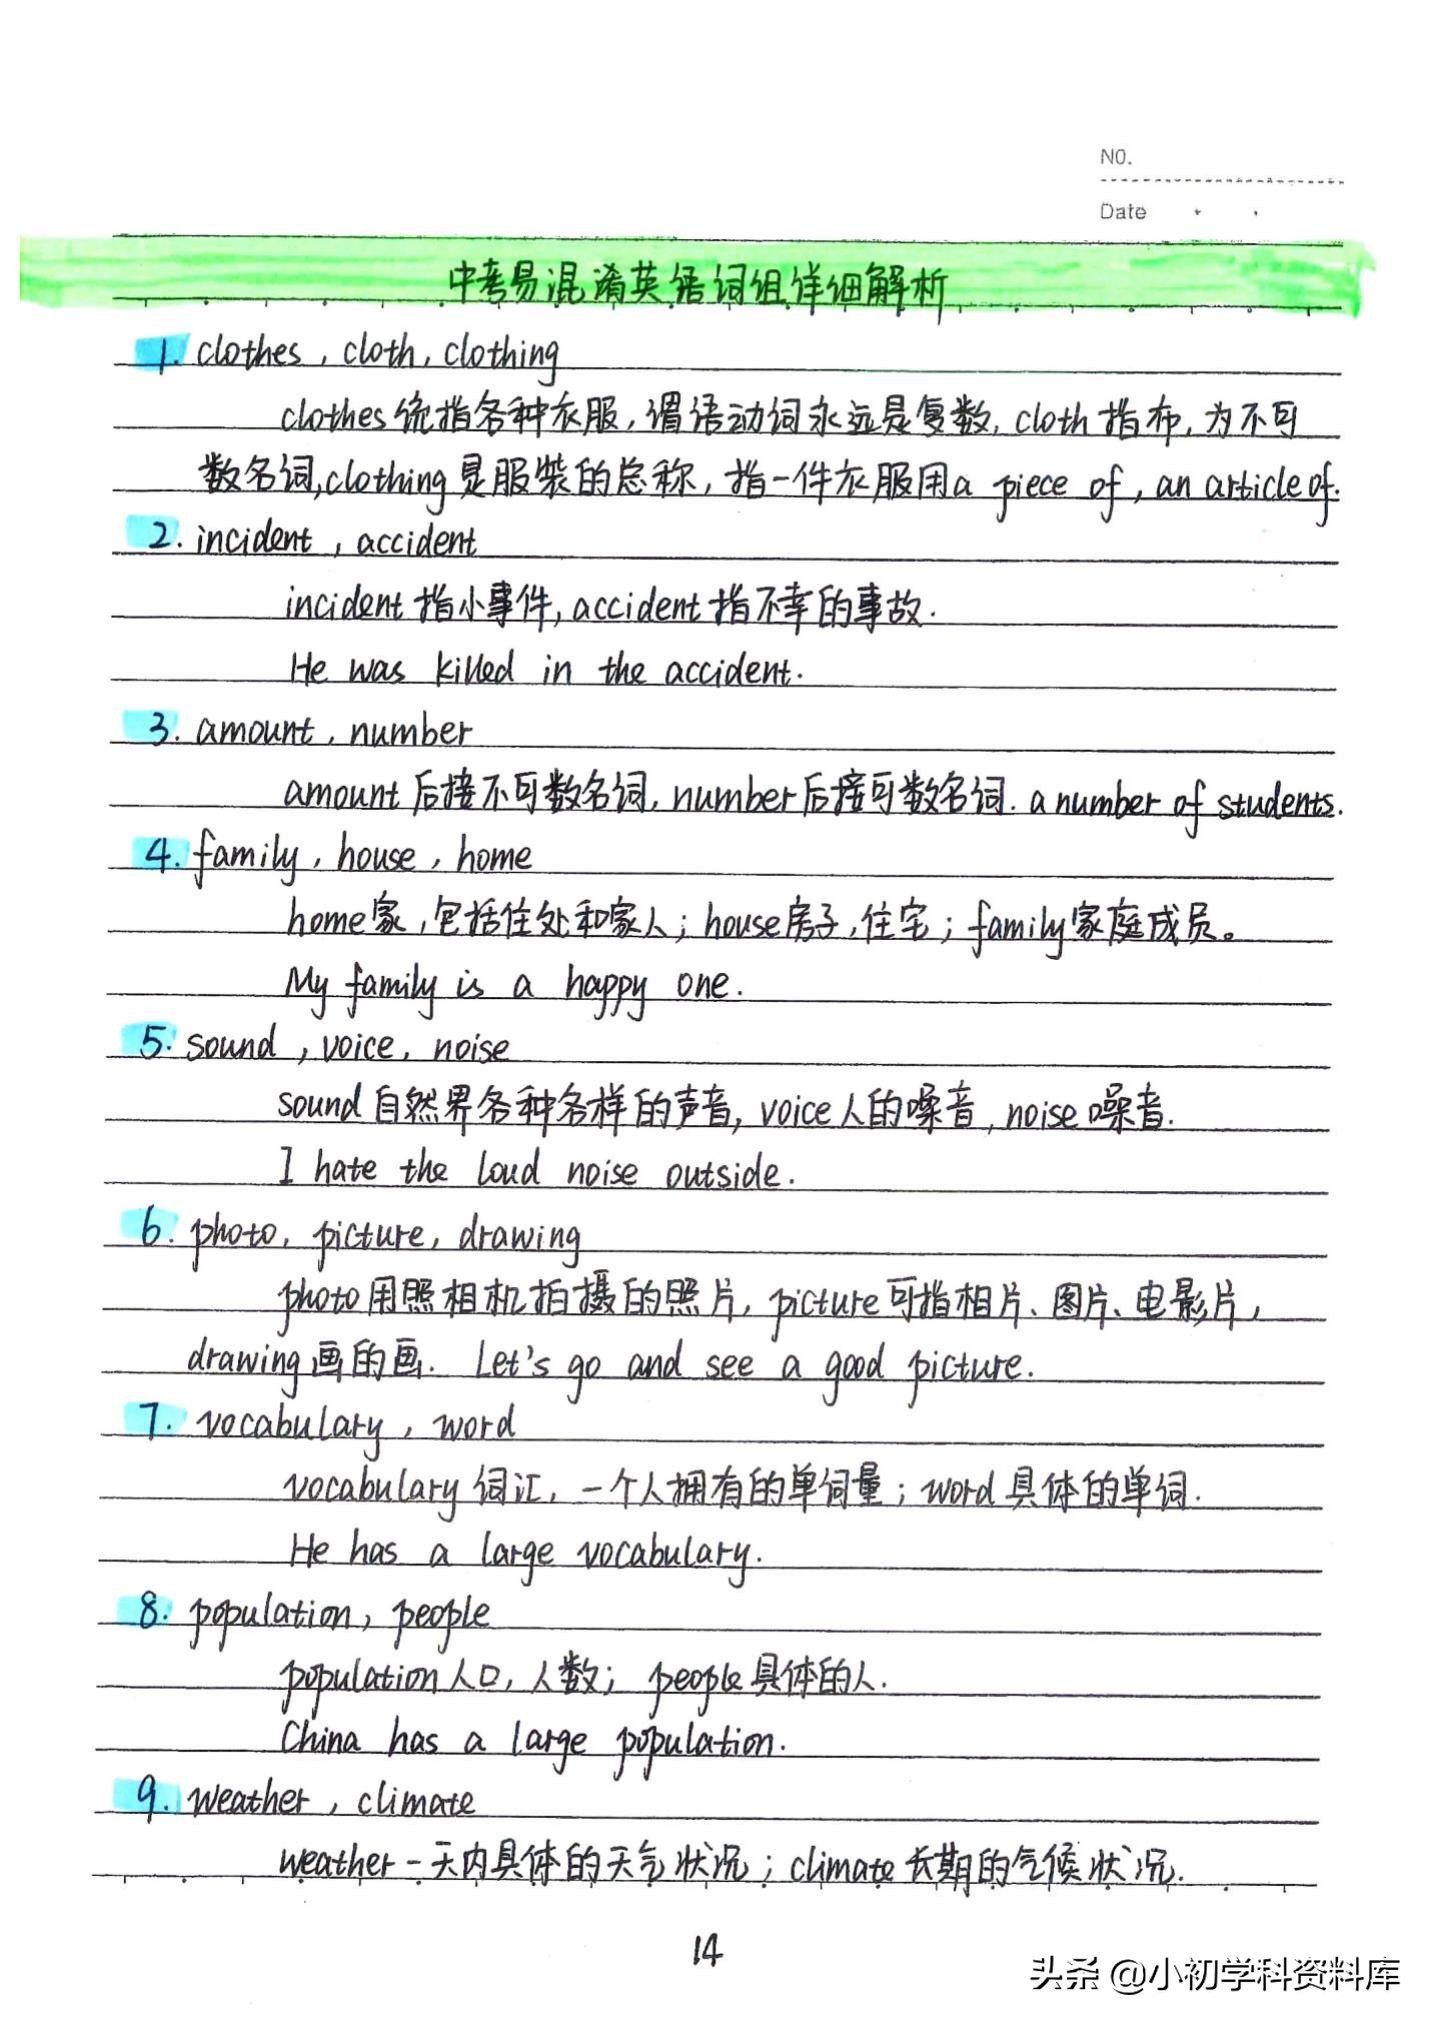 NO.
Date
中考易混淆英语词组详细解析
1. clothes, cloth, clothing
clothes统指各种衣服，谓语动词永远是复数, cloth指布, 为不可
数名词,clothing是服装的总称，指一件衣服用a piece of, an article of.
2. incident, accident
incident指小事件, accident指不幸的事故.
He was killed in the accident.
3. amount, number
amount后接不可数名词, number后接可数名词. a number of students.
4. family, house, home
home家,包括住处和家人; house房子,住宅; family家庭成员。
My family is a happy one.
5. sound, voice, noise
sound自然界各种各样的声音, voice人的嗓音, noise噪音.
I hate the loud noise outside.
6. photo, picture, drawing
photo用照相机拍摄的照片, picture可指相片、图片、电影片,
drawing画的画. Let's go and see a good picture.
7. vocabulary, word
vocabulary词汇, 一个人拥有的单词量; word具体的单词.
He has a large vocabulary.
8. population, people
population人口, 人数; people具体的人.
China has a large population.
9. weather, climate
weather一天内具体的天气状况; climate长期的气候状况.
14
头条 @小初学科资料库